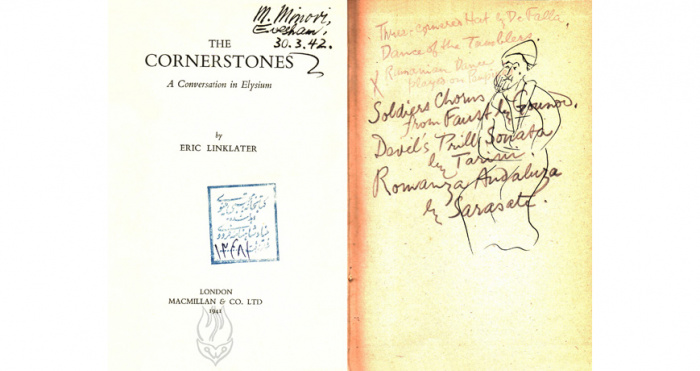 M. Minovi,
Evesham.
30.3.42.
THE
CORNERSTONES
A Conversation in Elysium
by
ERIC LINKLATER
LONDON
MACMILLAN & CO. LTD
1941
Three-cornered Hat by De Falla.
Dance of the Tumblers
X Rumanian Dance
played on
Soldiers Chorus
from Faust by Gounod.
Devil's Trill Sonata
by Tartini.
Romanza Andaluza
by Sarasate.